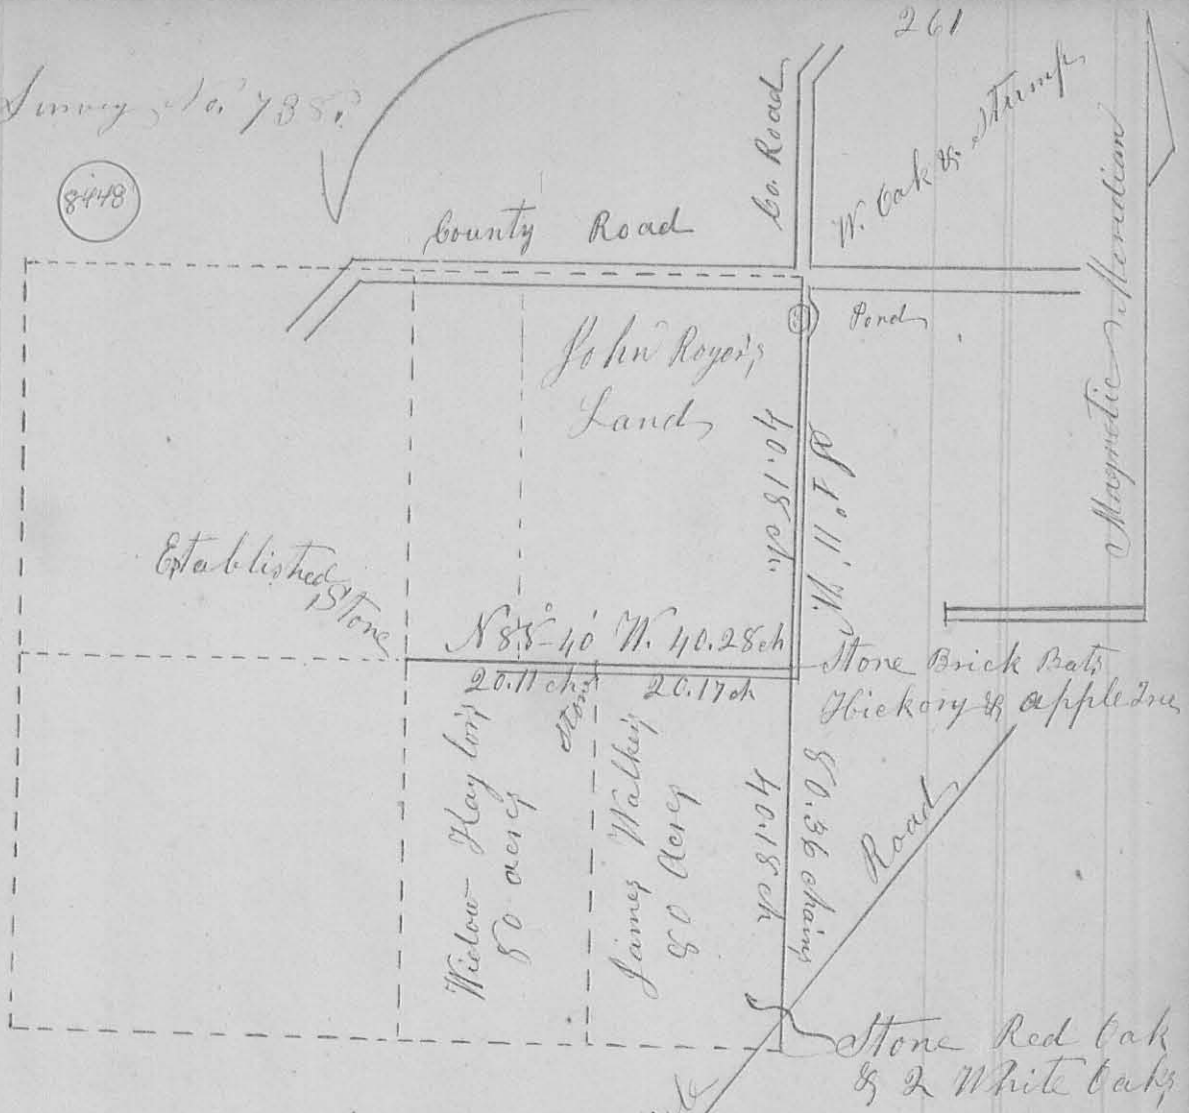 261
Survey No. 738.
8448
Co. Road
W. Oak & Stump
County Road
Magnetic Meridian
Pond
John Royer's
Land
40.18 ch.
S 1° 11' W.
Established
Stone
N 88°-40' W. 40.28 ch
20.11 chs
20.17 ch
Stone
Stone Brick Bats
Hickory & apple Tree
Widow Haylor's
80 acres
James Walker's
80 Acres
40.18 ch
80.36 chains
Road
Stone Red Oak
& 2 White Oaks